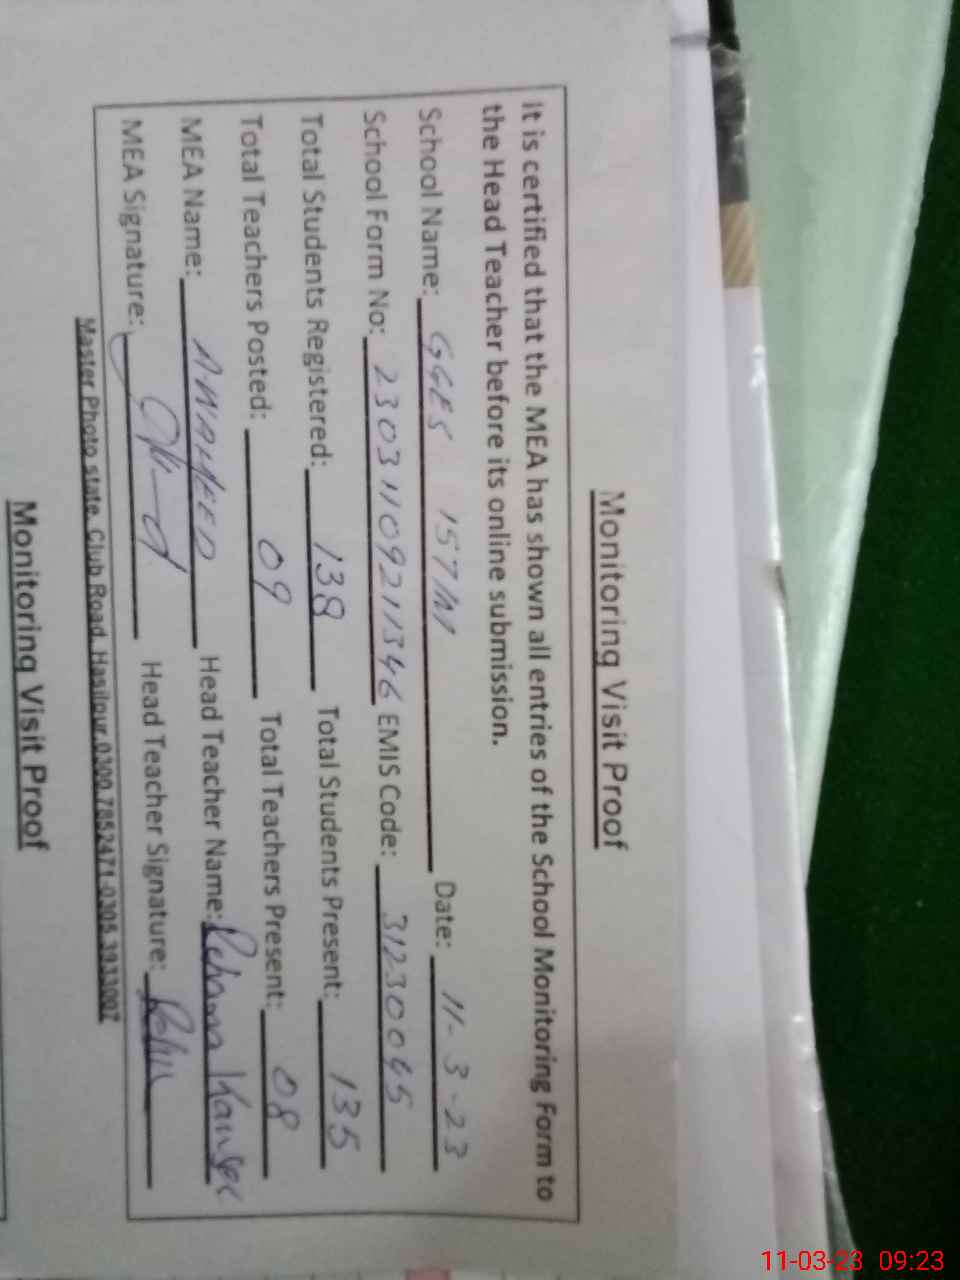 Monitoring Visit Proof
It is certified that the MEA has shown all entries of the School Monitoring Form to
the Head Teacher before its online submission.
School Name: GGES 157/M Date: 11-3-23
School Form No: 23031109211346 EMIS Code: 31230045
Total Students Registered: 138 Total Students Present: 135
Total Teachers Posted: 09 Total Teachers Present: 08
MEA Name: A. HAMEED Head Teacher Name: Kausar
MEA Signature: Head Teacher Signature:
Master Photo state, Club Road, Hasilpur 0300.7852471-0305.3933007
Monitoring Visit Proof
11-03-23 09:23